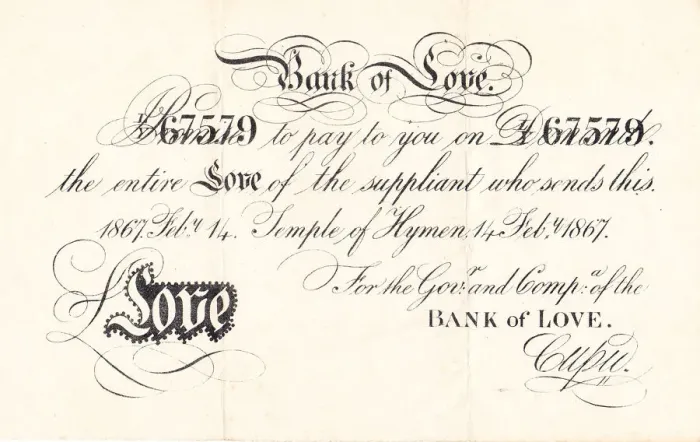 Bank of Love.
I Promise to pay to you on Demand.
№ 67579 № 67579
the entire Love of the suppliant who sends this.
1867. Feb.y 14. Temple of Hymen, 14 Feb.y 1867.
For the Gov.r and Comp.a of the
BANK of LOVE.
Love
Cupid.